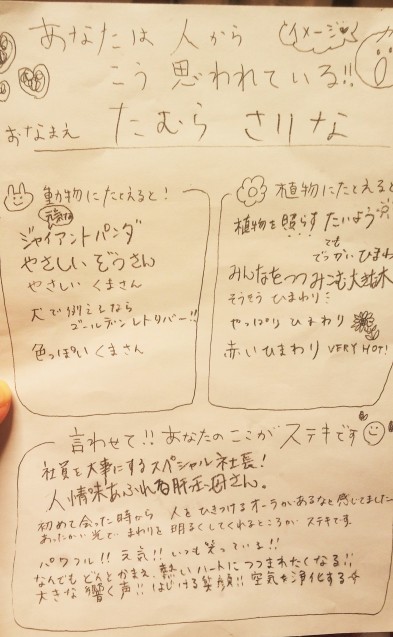 あなたは 人から
イメージ
こう 思われている!!
おなまえ たむら さりな
動物にたとえると!
元気な
ジャイアントパンダ
やさしい ぞうさん
やさしい くまさん
犬で例えるなら
ゴールデンレトリバー!!
色っぽい くまさん
植物にたとえると
植物を照らす たいよう
でも
でっかい ひまわ
みんなをつつみこむ大樹木
そうそう ひまわり
やっぱり ひまわり
赤いひまわり VERY HOT!
言わせて!! あなたのここが ステキです
社員を大事にするスペシャル社長!
人情味あふれる肝っ玉母さん。
初めて会った時から 人をひきつけるオーラがあるなと感じてました
あったかい光で まわりを 明るくしてくれるところが ステキです。
パワフル!! 元気!! いつも笑っている!!
なんでも どんとかまえ、熱いハートにつつまれたくなる!!
大きな 響く声!! はじける笑顔!! 空気を浄化する